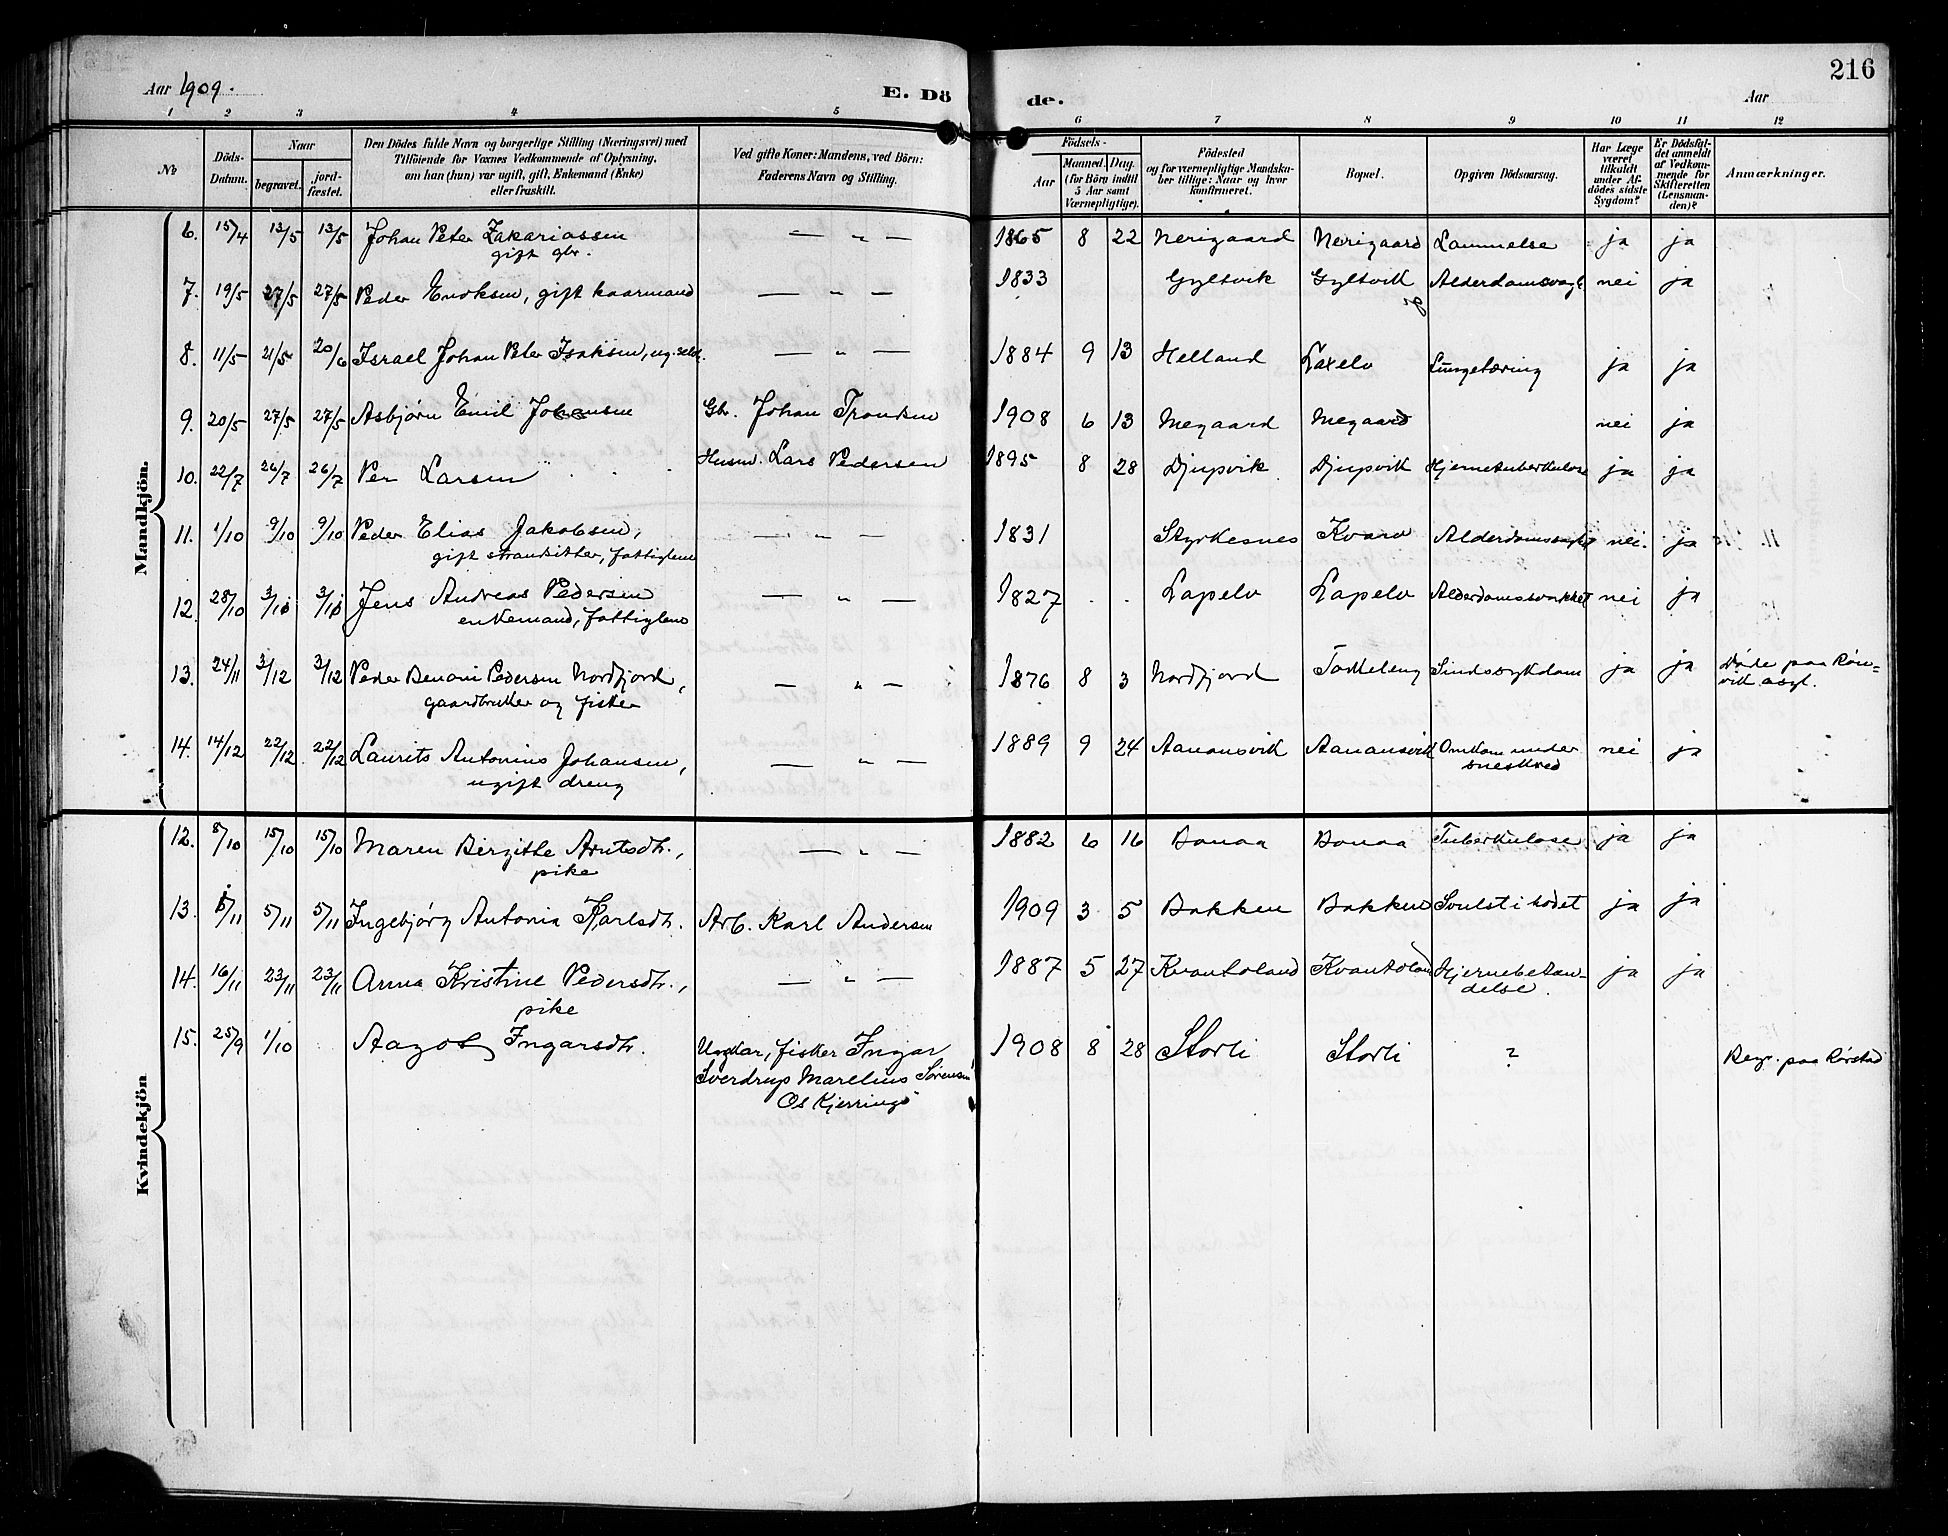 216
Aar 1909.
E. Dö
de.
Aar
1 2 3 4 5 6 7 8 9 10 11 12
No
Döds-Datum.
Naar
begravet.
jord-fæstet.
Den Dödes fulde Navn og borgerlige Stilling (Næringsvei) med
Tilföiende for Voxnes Vedkommende af Oplysning,
om han (hun) var ugift, gift, Enkemand (Enke)
eller fraskilt.
Ved gifte Koner: Mandens, ved Börn:
Faderens Navn og Stilling.
Födsels-
Aar
Maaned. Dag.
(for Börn indtil
5 Aar samt
Værnepligtige).
Födested
og for værnepligtige Mandska-
ber tillige: Naar og hvor
Konfirmeret.
Bopæl.
Opgiven Dödsaarsag.
Har Læge
været
tilkaldt
under Af-
dödes sidste
Sygdom?
Er Dödsfal-
det anmeldt
af Vedkom-
mende for
Skifteretten
(Lensman-
den)?
Anmærkninger.
Mandkjön.
6. 15/4 13/5 13/5 Johan Peter Zakariassen — „ — 1865 8 22 Nerigaard Nerigaard Lammelse ja ja
gift gbr.
7. 19/5 27/5 27/5 Peder Enoksen, gift kaarmand — „ — 1833 Gyltvik Gyltvik nei ja
8. 11/5 21/5 20/6 Israel Johan Peter Isaksen, ug. — „ — 1884 9 13 Helland Laxelv Lungetæring ja ja
9. 20/5 27/5 27/5 Asbjørn Emil Johansen Gbr. Johan Trondsen 1908 6 13 Megaard Megaard nei ja
10. 22/7 26/7 26/7 Per Larsen Husm. Lars Pedersen 1895 8 28 Djupvik Djupvik Hjernetuberkulose ja ja
11. 1/10 9/10 9/10 Peder Elias Jakobsen, — „ — 1831 Styrkesnes Kvarv nei. ja
gift strandsitter, fattiglem
12. 28/10 3/11 3/11 Jens Andreas Pedersen — „ — 1827 . . Lapelv Lapelv Alderdomssvakhet nei ja
enkemand, fattiglem
13. 24/11 3/12 3/12 Peder Benoni Pedersen Nordfjord, — „ — 1876 8 3 Nordfjord Tørkeleng Sindssygdom ja ja Døde paa Røn-
gaardbruker og fisker vik asyl.
14. 14/12 22/12 22/12 Laurits Antonius Johansen, — „ — 1889 9 24 Aanansvik Aanansvik Omkom under nei ja
ugift dreng sneskred
Kvindekjön
12. 8/10 15/10 15/10 Maren Birgitte Arntsdtr., — „ — 1882 6 16 Bonaa Bonaa Tuberkulose ja ja
pike
13. 1/11 5/11 5/11 Ingebjørg Antonia Karlsdtr. Arb. Karl Andersen 1909 3 5 Bakken Bakken Svulst i hodet ja ja
14. 16/11 23/11 23/11 Anna Kristine Pedersdtr., — „ — 1887 5 27 Kvantoland Kvantoland Hjernebetæn- ja ja
pike delse.
15. 25/9 1/10 Aagot Ingarsdtr. Ungkar, fisker Ingar 1908 8 28 Storli Storli ? Begr. paa Rørstad
Sverdrup Marelius Sørensen
Os Kjerringø